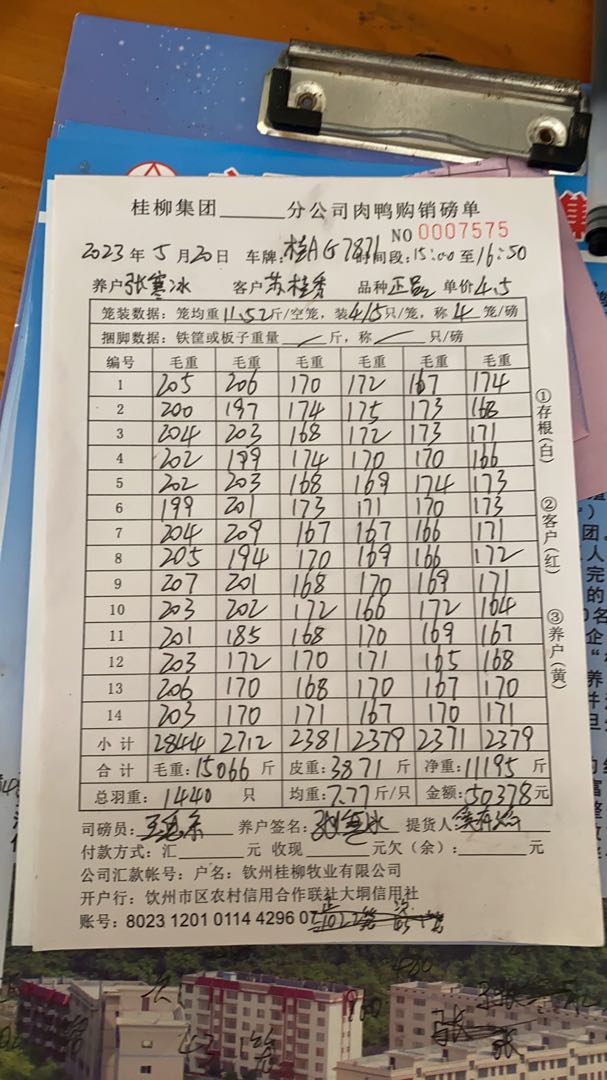 桂柳集团______分公司肉鸭购销磅单
NO 0007575
2023年5月20日 车牌:桂AG7871 时间段:15:00至16:50
养户张寒冰 客户苏桂秀 品种正品 单价4.5
笼装数据:笼均重11.52斤/空笼,装4/5只/笼,称4笼/磅
捆脚数据:铁筐或板子重量 / 斤,称 / 只/磅
编号 毛重 毛重 毛重 毛重 毛重 毛重
1 205 206 170 172 167 174
2 200 197 174 175 173 168
3 204 203 168 172 173 171
4 202 199 174 170 170 166
5 202 203 168 169 174 173
6 199 201 173 171 170 173
7 204 209 167 167 166 171
8 205 194 170 169 166 172
9 207 201 168 170 169 171
10 203 202 172 166 172 164
11 201 185 168 170 169 167
12 203 172 170 171 165 168
13 206 170 168 170 167 170
14 203 170 171 167 170 171
小计 2844 2712 2381 2379 2371 2379
合计 毛重:15066斤 皮重:3871斤 净重:11195斤
总羽重:1440只 均重:7.77斤/只 金额:50378元
司磅员: 养户签名:张寒冰 提货人:
付款方式:汇______元 收现______元欠(余):______元
公司汇款帐号:户名:钦州桂柳牧业有限公司
开户行:钦州市区农村信用合作联社大垌信用社
账号:8023 1201 0114 4296 07
①存根(白)
②客户(红)
③养户(黄)